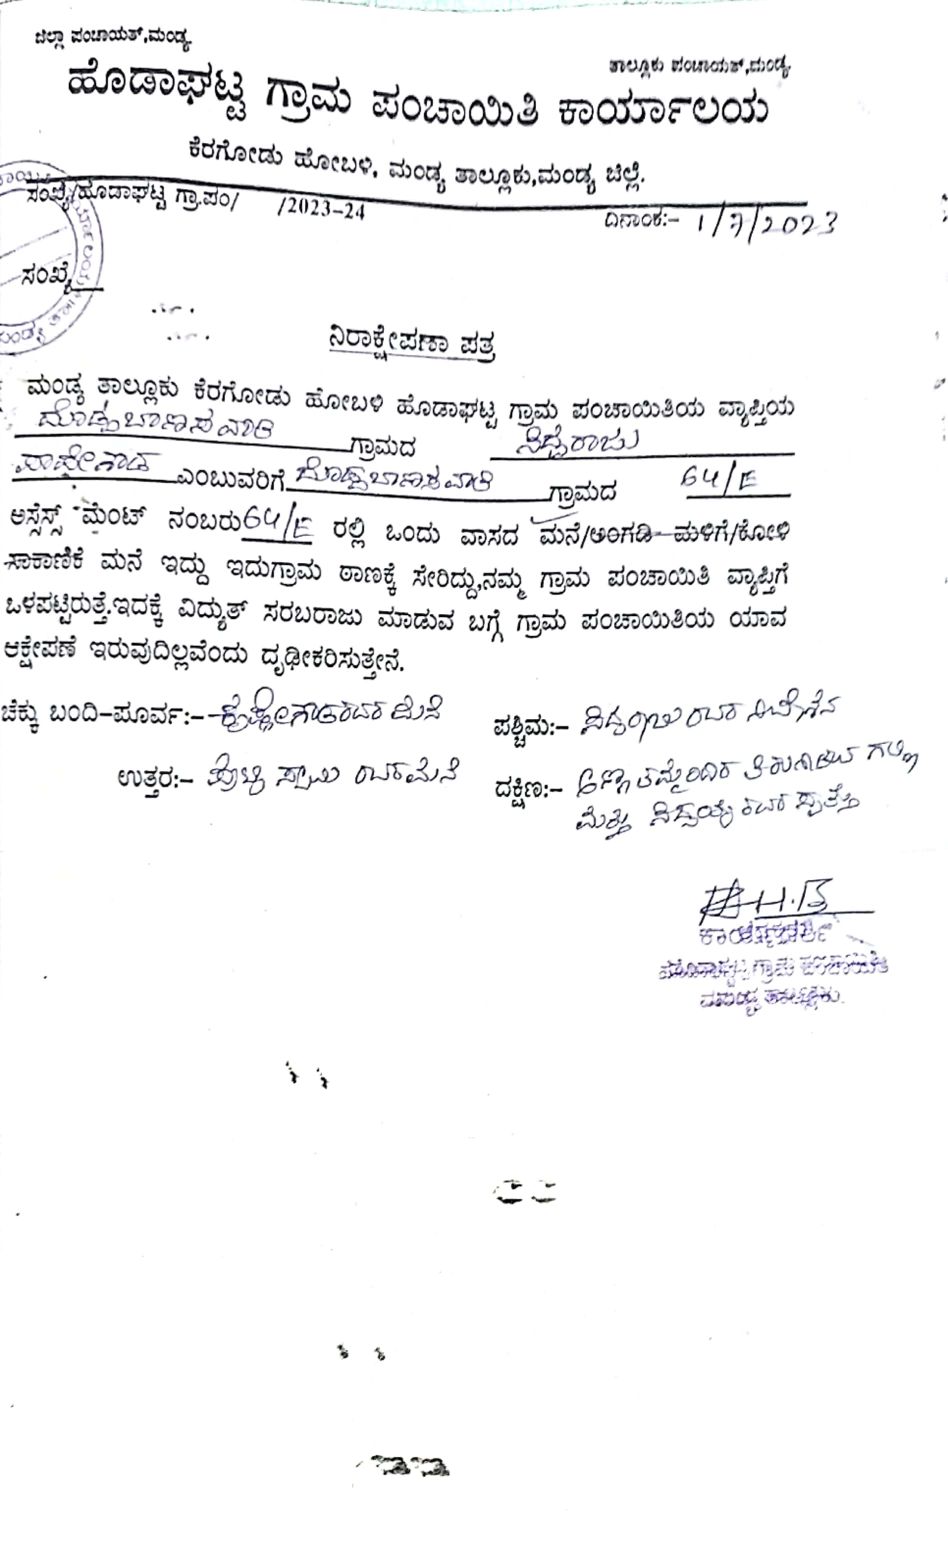 ಜಿಲ್ಲಾ ಪಂಚಾಯತ್,ಮಂಡ್ಯ.
ತಾಲ್ಲೂಕು ಪಂಚಾಯತ್,ಮಂಡ್ಯ.
ಹೊಡಾಘಟ್ಟ ಗ್ರಾಮ ಪಂಚಾಯಿತಿ ಕಾರ್ಯಾಲಯ
ಕೆರಗೋಡು ಹೋಬಳಿ, ಮಂಡ್ಯ ತಾಲ್ಲೂಕು,ಮಂಡ್ಯ ಜಿಲ್ಲೆ.
ಸಂಖ್ಯೆ/ಹೊಡಾಘಟ್ಟ ಗ್ರಾ.ಪಂ/ /2023-24
ದಿನಾಂಕ:- 1/7/2023
ಸಂಖ್ಯೆ
ನಿರಾಕ್ಷೇಪಣಾ ಪತ್ರ
ಮಂಡ್ಯ ತಾಲ್ಲೂಕು ಕೆರಗೋಡು ಹೋಬಳಿ ಹೊಡಾಘಟ್ಟ ಗ್ರಾಮ ಪಂಚಾಯಿತಿಯ ವ್ಯಾಪ್ತಿಯ
ದೊಡ್ಡಬಾಣಸವಾಡಿ ಗ್ರಾಮದ ಸಿದ್ದರಾಜು
ಎಂಬುವರಿಗೆ ದೊಡ್ಡಬಾಣಸವಾಡಿ ಗ್ರಾಮದ 64/E
ಅಸ್ಸೆಸ್ಸ್ ಮೆಂಟ್ ನಂಬರು 64/E ರಲ್ಲಿ ಒಂದು ವಾಸದ ಮನೆ/ಅಂಗಡಿ ಮಳಿಗೆ/ಕೋಳಿ
ಸಾಕಾಣಿಕೆ ಮನೆ ಇದ್ದು ಇದುಗ್ರಾಮ ಠಾಣಕ್ಕೆ ಸೇರಿದ್ದು,ನಮ್ಮ ಗ್ರಾಮ ಪಂಚಾಯಿತಿ ವ್ಯಾಪ್ತಿಗೆ
ಒಳಪಟ್ಟಿರುತ್ತೆ.ಇದಕ್ಕೆ ವಿದ್ಯುತ್ ಸರಬರಾಜು ಮಾಡುವ ಬಗ್ಗೆ ಗ್ರಾಮ ಪಂಚಾಯಿತಿಯ ಯಾವ
ಆಕ್ಷೇಪಣೆ ಇರುವುದಿಲ್ಲವೆಂದು ದೃಢೀಕರಿಸುತ್ತೇನೆ.
ಚೆಕ್ಕು ಬಂದಿ-ಪೂರ್ವ:-
ಪಶ್ಚಿಮ:-
ಉತ್ತರ:- ಸ್ವಾಮಿ ರವರ ಮನೆ
ದಕ್ಷಿಣ:-
ಮತ್ತು
H.B
ಕಾರ್ಯದರ್ಶಿ
ಹೊಡಾಘಟ್ಟ ಗ್ರಾಮ ಪಂಚಾಯಿತಿ
ಮಂಡ್ಯ ತಾಲ್ಲೂಕು.